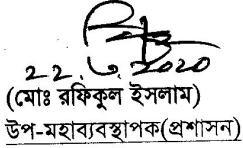 22.৩.2020
(মোঃ রফিকুল ইসলাম)
উপ-মহাব্যবস্থাপক(প্রশাসন)